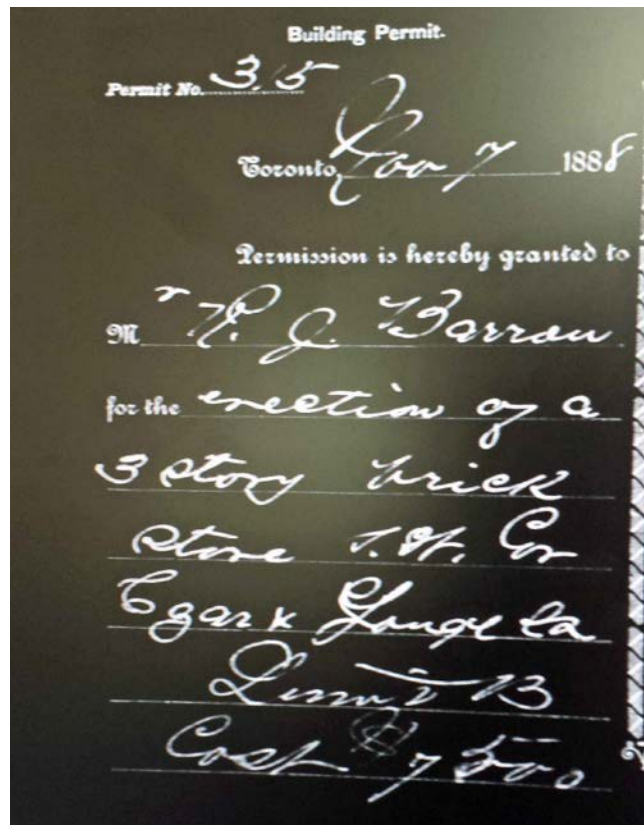 Building Permit.
Permit No. 35
Toronto, Nov 7 1888
Permission is hereby granted to
Mr R. J. Barron
for the erection of a
3 story brick
store S.W. Cor
Czar & Yonge Sts
Limit B
Cost $7500